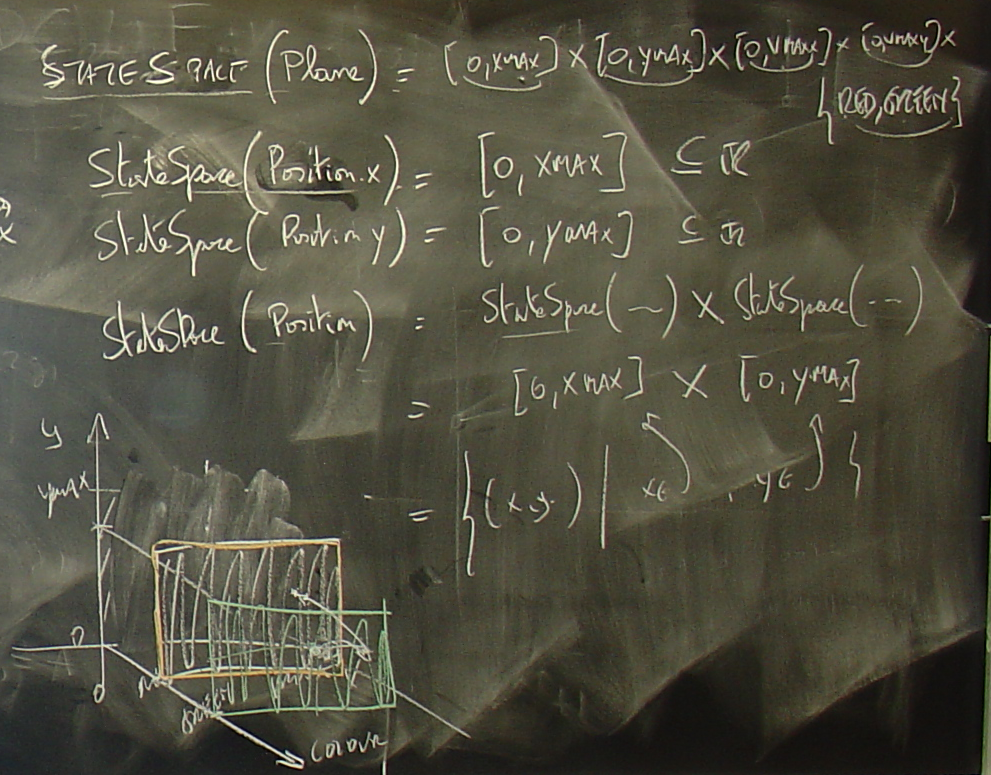 STATE SPACE (Plane) = [0, XMAX] × [0, YMAX] × [0, VMAX] × [0, VMAXY] ×
{RED, GREEN}
StateSpace (Position.x) = [0, XMAX] ⊆ ℝ
StateSpace (Position y) = [0, YMAX] ⊆ ℝ
StateSpace (Position) = StateSpace(—) × StateSpace(--)
= [0, XMAX] × [0, YMAX]
= {(x, y) | x∈ , y∈ }
y
YMAX
0
GREEN
COLOUR